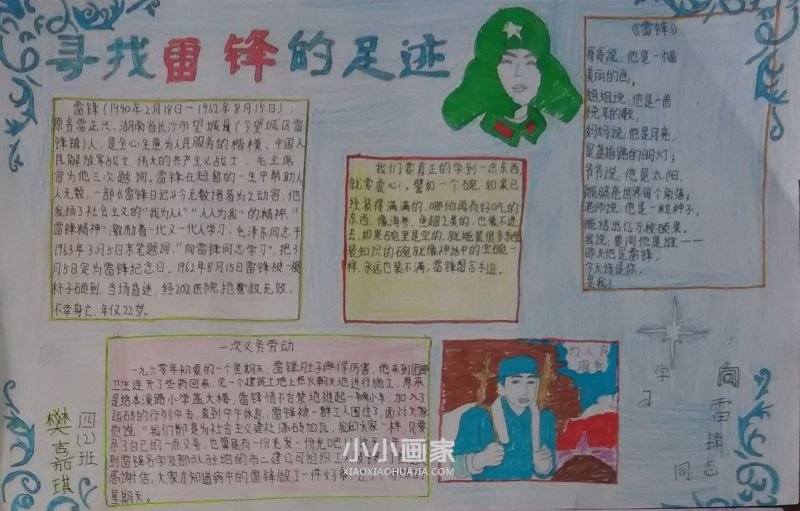 寻找雷锋的足迹
雷锋(1940年2月18日—1962年8月15日),
原名雷正兴,湖南省长沙市望城县(今望城区雷
锋镇)人,是全心全意为人民服务的楷模,中国人
民解放军战士,伟大的共产主义战士,毛主席
曾为他三次题词。雷锋在短暂的一生中帮助人
人无数,一部《雷锋日记》令无数读者为之动容,他
发扬了社会主义的“我为人人”“人人为我”的精神,“
雷锋精神”激励着一代又一代人学习,毛泽东同志于
1963年3月5日亲笔题词“向雷锋同志学习”,把3
月5日定为雷锋纪念日,1962年8月15日雷锋被一根
杆子砸到,当场昏迷,经202医院抢救无效,
不幸身亡,年仅22岁。
我们要真正的学到一点东西,
就要虚心。譬如一个碗,如果已
经装得满满的,哪怕再有好吃的
东西,像海参、鱼翅之类的,也装不进
去,如果碗里是空的,就能装很多东西
装知识的碗就像神话中的宝碗一
样,永远也装不满,雷锋留言手迹。
《雷锋》
哥哥说,他是一幅
美丽的色,
姐姐说,他是一首
悦耳的歌,
妈妈说,他是月亮,
是盏指路的明灯;
爷爷说,他是太阳,
能照亮世界每个角落;
老师说,他是一粒种子,
能结出亿万棵硕果。
我说,要问他是谁——
昨天他是雷锋,
今天该是你,
是我!
一次义务劳动
一九六零年初夏的一个星期天,雷锋肚子疼得厉害,他来到团部
卫生连开了些药回来,见一个建筑工地上热火朝天地进行施工,原来
是给本溪路小学盖大楼,雷锋情不自禁地推起一辆小车,加入了
运砖的行列中去,直到中午休息,雷锋被一群工人围住了,面对大家
他说:“我们都是为社会主义建设添砖加瓦,我和大家一样,只要
尽了自己的一点义务,也算是有一份光发一份光吧
到雷锋名字及部队驻地的市二建公司组织工人
感谢信,大家才知道病中的雷锋做了一件好事,过了
星期天。
为人民
服务
向雷锋同志
学习
四(2)班
樊嘉琪
小小画家
XIAOXIAOHUAJIA.COM